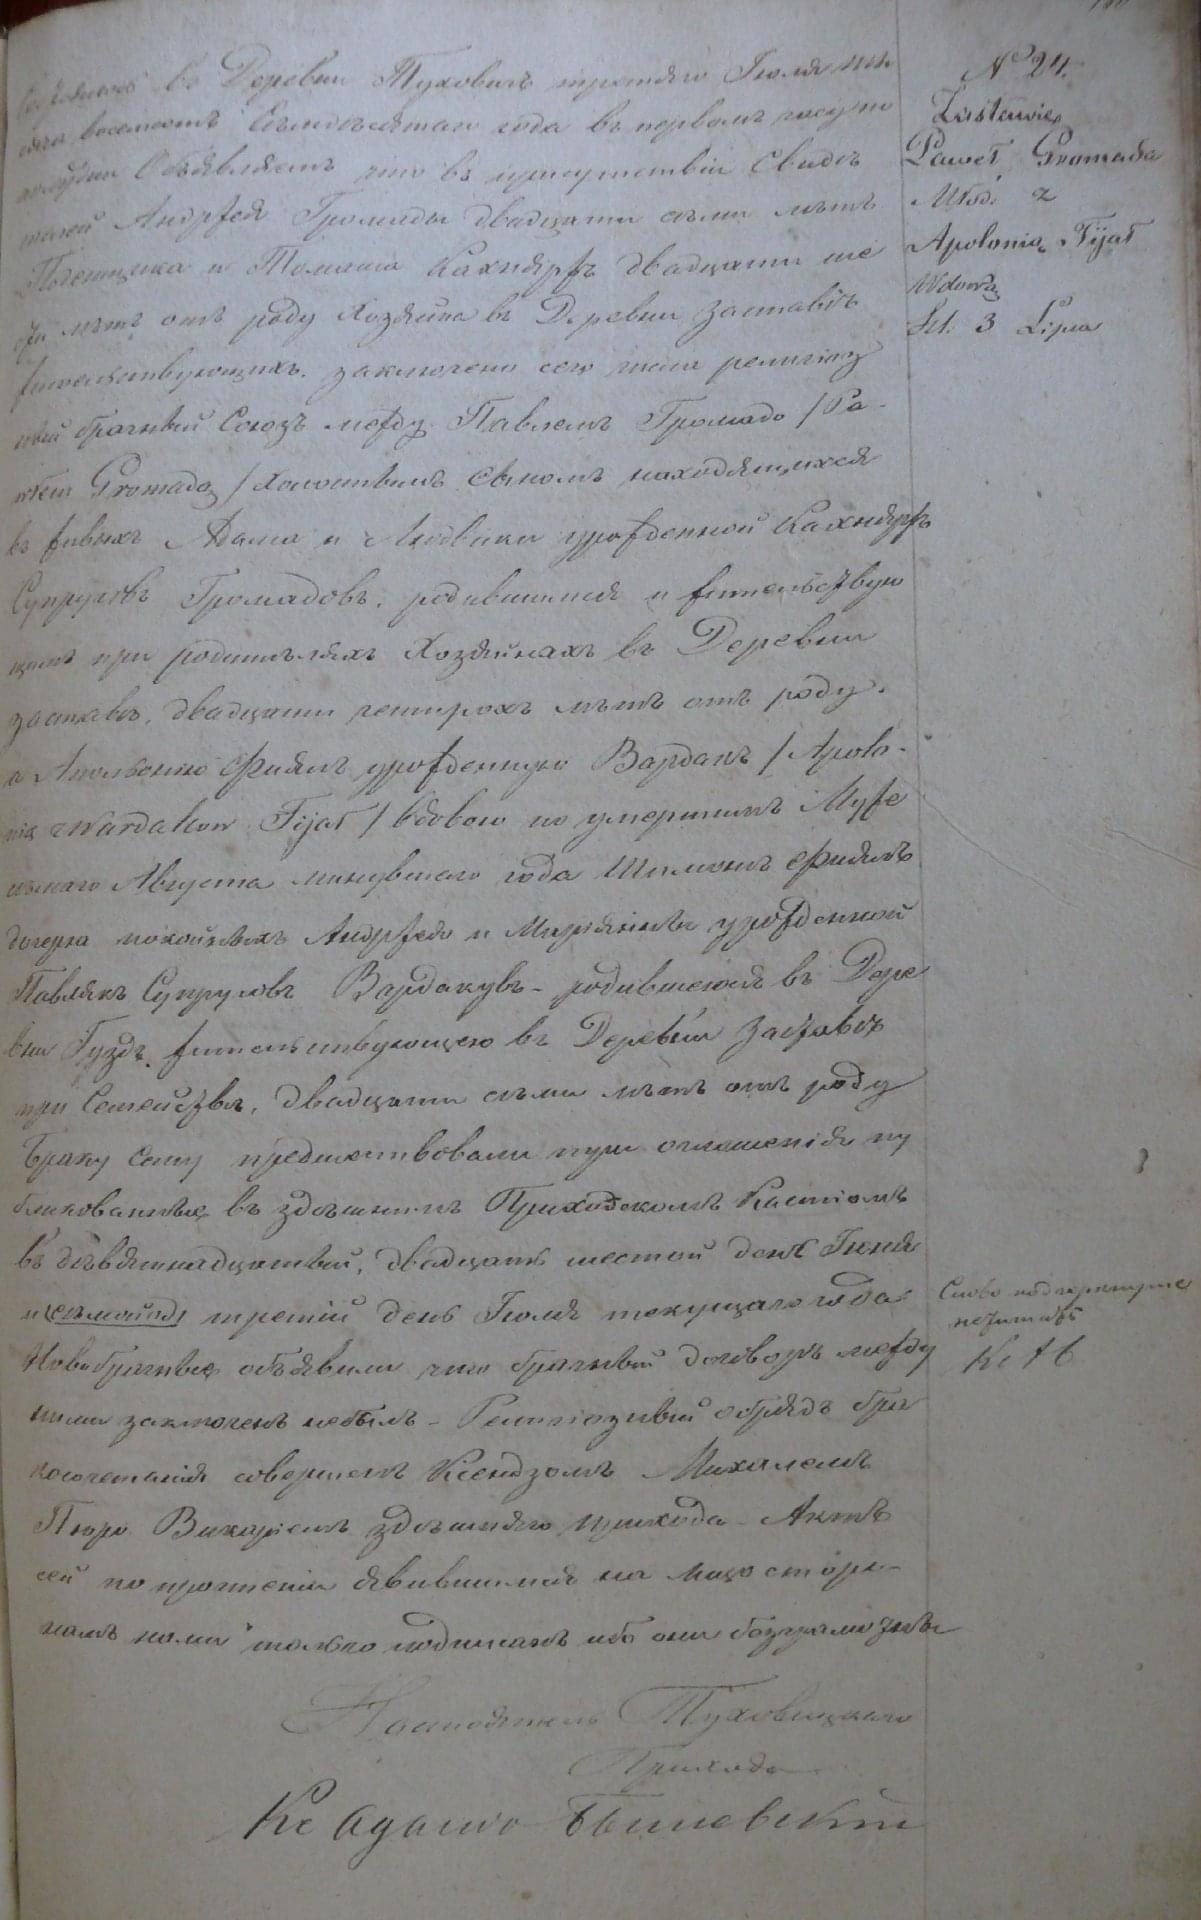 въ Деревни Туховичъ третяго Іюля ты
сяча восемсотъ семдесятаго года въ первомъ часу по
полудни Объявляемъ что въ присутствіи Свидѣ
телей Андржея Громады двадцати семи лѣтъ
Поденщика и Томаша Кахняржъ двадцати ше
сти лѣтъ отъ роду Хозяина въ Деревни Заставѣ
жительствующихъ. заключено сего числа религіоз
ный брачный Союзъ между Павлемъ Громадо /Pa-
włem Gromadą/ Холостымъ сыномъ находящихся
въ живыхъ Адама и Людвики урожденной Кахняржъ
Супруговъ Громадовъ. родившимся и жительствую
щимъ при родителяхъ Хозяинахъ въ Деревни
Заставѣ, двадцати четырохъ лѣтъ отъ роду.
а Апольонію Фиялъ урожденную Вардакъ /Apolo-
nią Wardaków Fijał/ вдовою по умершимъ
Августа минувшаго года Шимонѣ Фиялъ
дочерью покойныхъ Андржея и Маріянны урожденной
Павлякъ Супруговъ Вардакувъ - родившеюся въ Дере
вни Гуздъ. жительствующею въ Деревни Заставѣ
при Семействѣ, двадцати семи лѣтъ отъ роду
Браку сему предшествовали три оглашенія пу
бликованные въ здѣшнимъ Приходскомъ Костіолѣ
въ девятнадцатый, двадцать шестой день Іюня
и третій день Іюля текущаго года
Новобрачные объявили что брачный договоръ между
ними заключенъ небылъ - Религіозный обрядъ бра
косочетанія совершенъ Ксендзомъ Михалемъ
Викаріемъ здѣшняго прихода - Актъ
сей по прочтеніи явившимся на лицо сторо-
намъ нами только подписанъ ибо они безграмотны
Настоятель Туховицкаго
Прихода
Кс Адамъ
№ 24.
Zastawie
Paweł Gromada
Młod. z
Apolonią Fijał
Wdową
Śl. 3 Lipca
Слово подчеркнутое
нечитать
Кс А Б